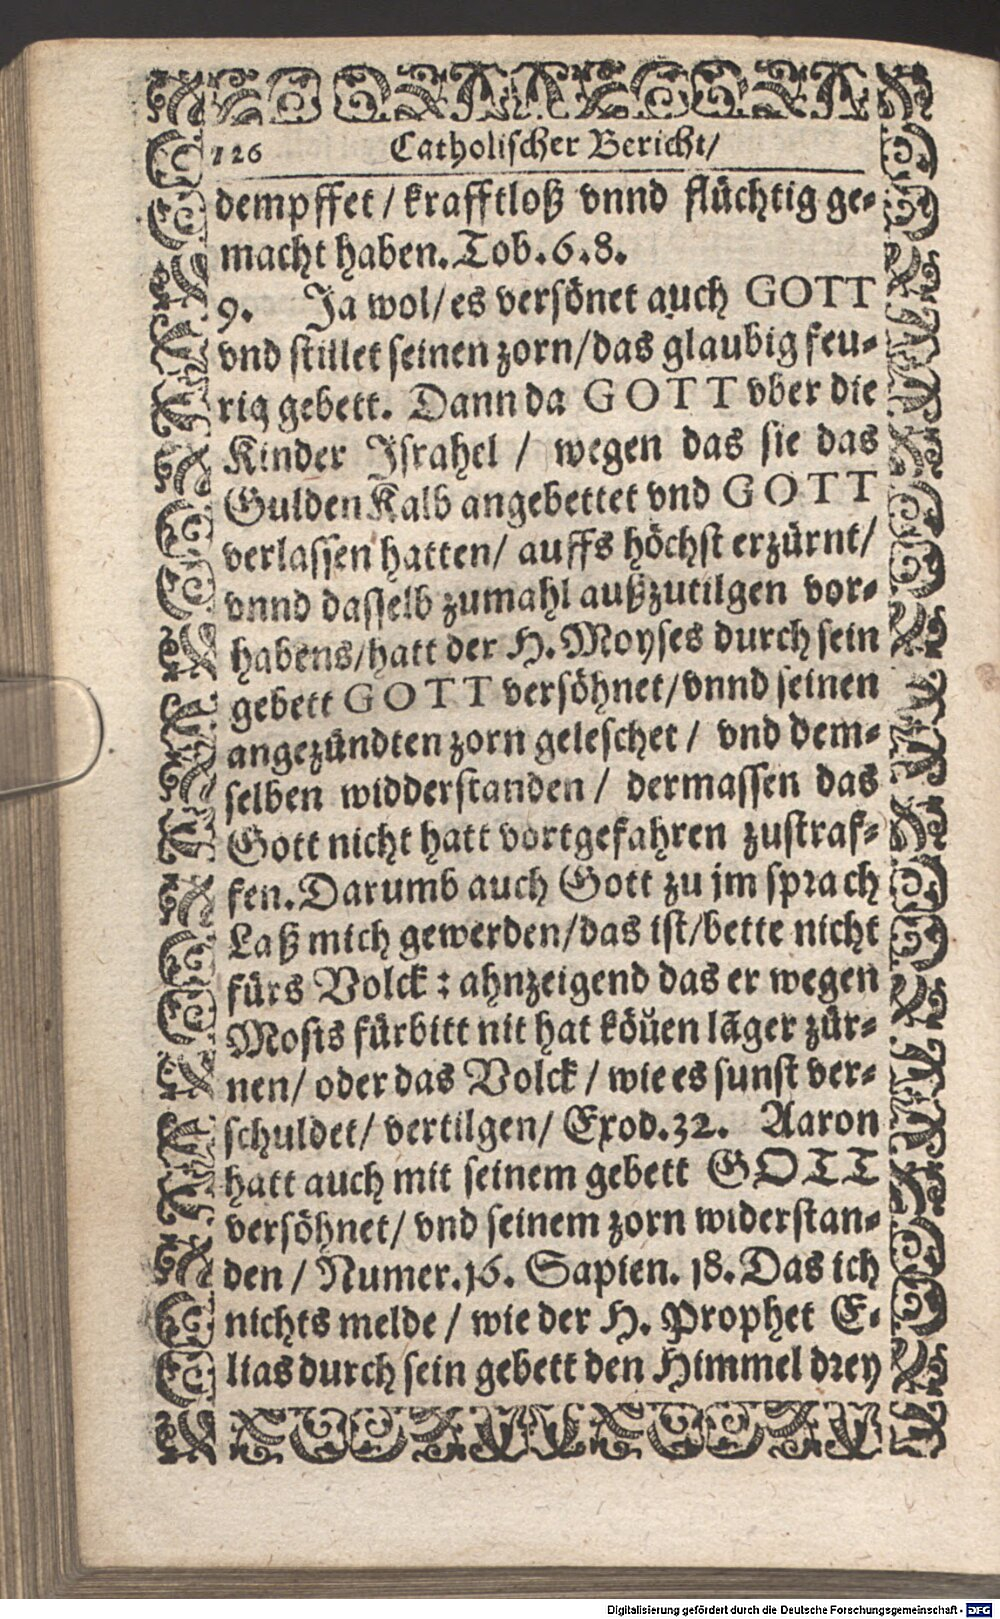 126 Catholischer Bericht/
dempffet / krafftloß vnnd flüchtig ge-
macht haben. Tob. 6. 8.
9. Ja wol / es versönet auch GOTT
vnd stillet seinen zorn / das glaubig feu-
rig gebett. Dann da GOTT vber die
Kinder Israhel / wegen das sie das
Gulden Kalb angebettet vnd GOTT
verlassen hatten / auffs höchst erzürnt /
vnnd dasselb zumahl außzutilgen vor-
habens / hatt der H. Moyses durch sein
gebett GOTT versöhnet / vnnd seinen
angezündten zorn geleschet / vnd dem-
selben widderstanden / dermassen das
Gott nicht hatt vortgefahren zustraf-
fen. Darumb auch Gott zu jm sprach
Laß mich gewerden / das ist / bette nicht
fürs Volck : ahnzeigend das er wegen
Mosis fürbitt nit hat köñen lãger zür-
nen / oder das Volck / wie es sunst ver-
schuldet / vertilgen / Exod. 32. Aaron
hatt auch mit seinem gebett GOTT
versöhnet / vnd seinem zorn widerstan-
den / Numer. 16. Sapien. 18. Das ich
nichts melde / wie der H. Prophet E-
lias durch sein gebett den Himmel drey
Digitalisierung gefördert durch die Deutsche Forschungsgemeinschaft - DFG